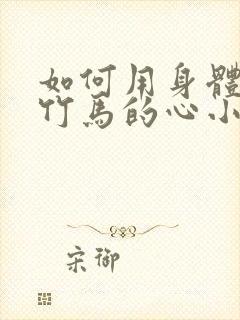 如何用身體
竹馬的心小
宋御